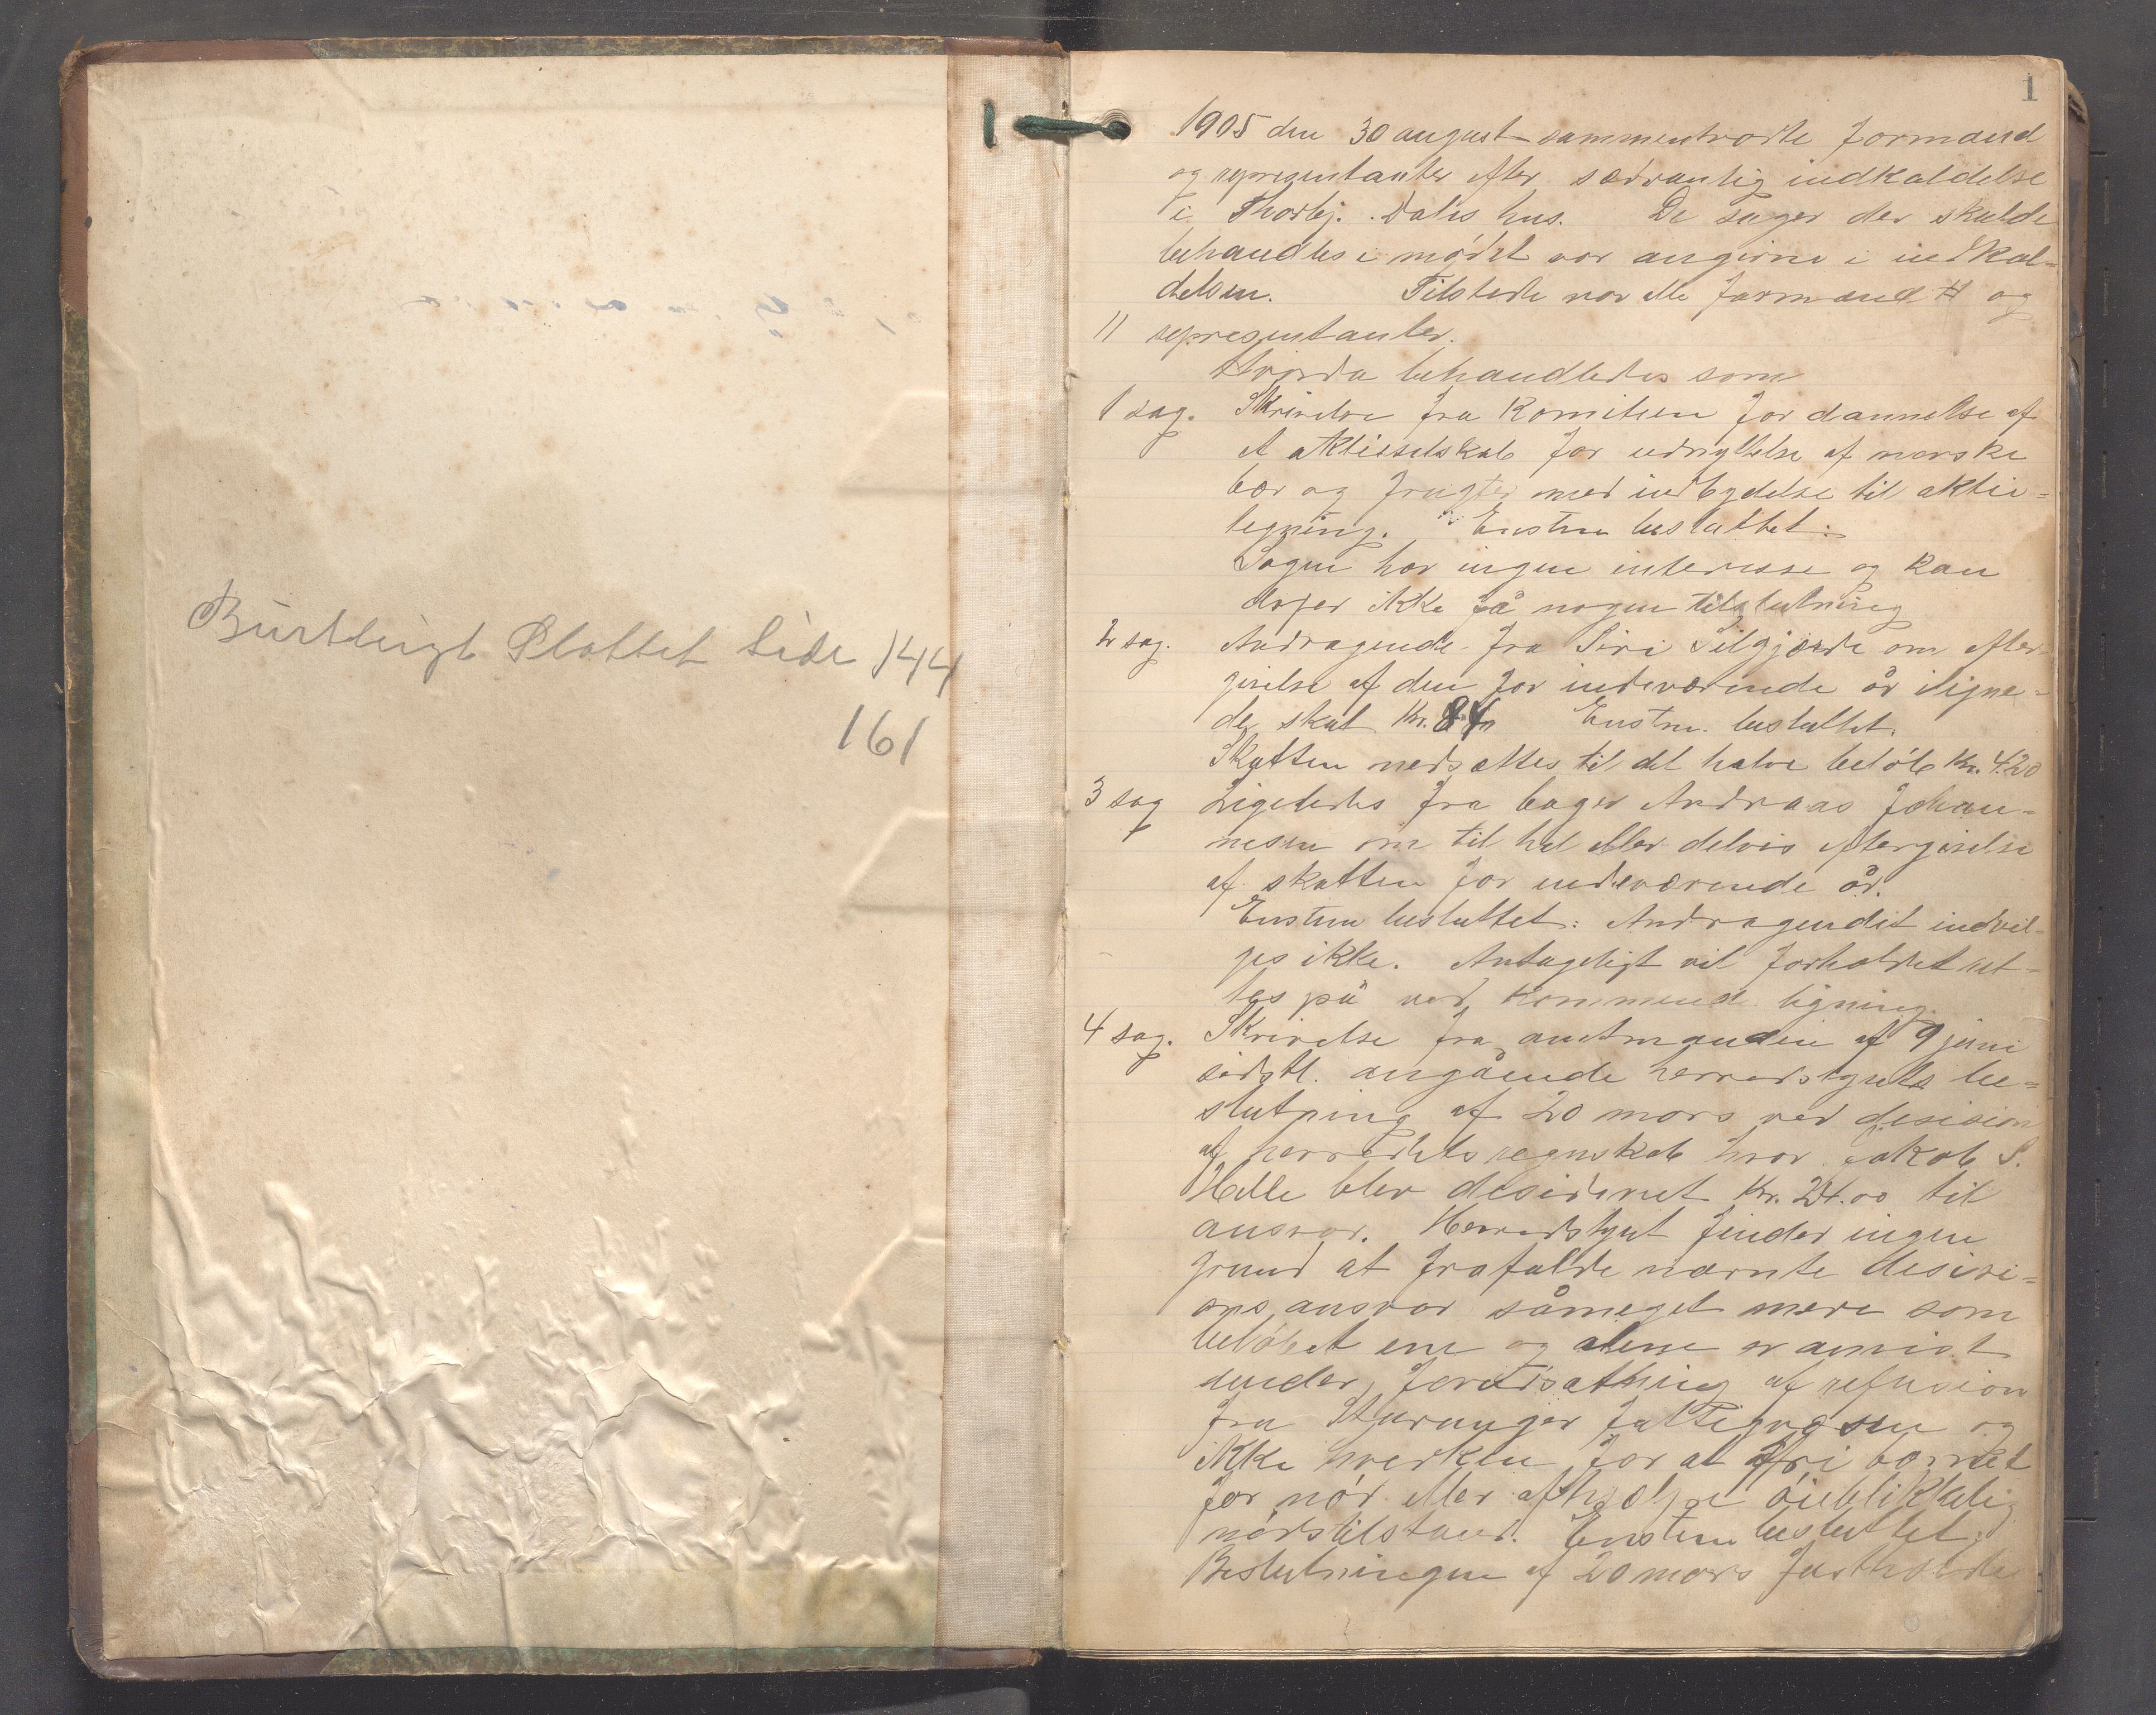 Burtleigt Slottet Side 144
161
1
1905 den 30 august sammentrådte formænd
og representanter efter sædvanlig indkaldelse
i Thorbj. Dales hus. De sager der skulde
behandles i mødet var angivne i indkal-
delsen. Tilstede var alle formænd # og
11 representanter.
Hvorda behandledes som
1 sag. Skrivelse fra Komiteen for dannelse af
et aktieselskab for udnyttelse af norske
bær og frugter med indbydelse til aktie-
tegning. Enstm besluttet:
Sagen har ingen interesse og kan
derfor ikke få nogen tilslutning
2 sag. Andragende fra Siri Selgjærde om efter-
givelse af den for indeværende år iligne-
de skat Kr. 84 Enstm. besluttet.
Skatten nedsættes til det halve beløb Kr. 4.20
3 sag Ligeledes fra bager Andreas Johan-
nesen om til hel eller delvis eftergivelse
af skatten for indeværende år.
Enstm besluttet: Andragendet indvil-
ges ikke. Antageligt vil forholdet ret-
tes på ved kommende ligning.
4 sag. Skrivelse fra amtmanden af 9 juni
sidstl. angående herredstyrets be-
slutning af 20 mars ved desision
af herredets regnskab hvor Jakob S.
Helle blev desideret Kr. 24.00 til
ansvar. Herredstyret finder ingen
grund at frafalde nævnte desisi-
ons ansvar såmeget mere som
beløbet ene og alene er anvist
under forudsætning af refusion
fra Stavanger fattigvæsen og
ikke hverken for at fri barnet
for nød eller afhjælpe øieblikkelig
nødstilstand. Enstm besluttet:
Beslutningen af 20 mars fastholdes